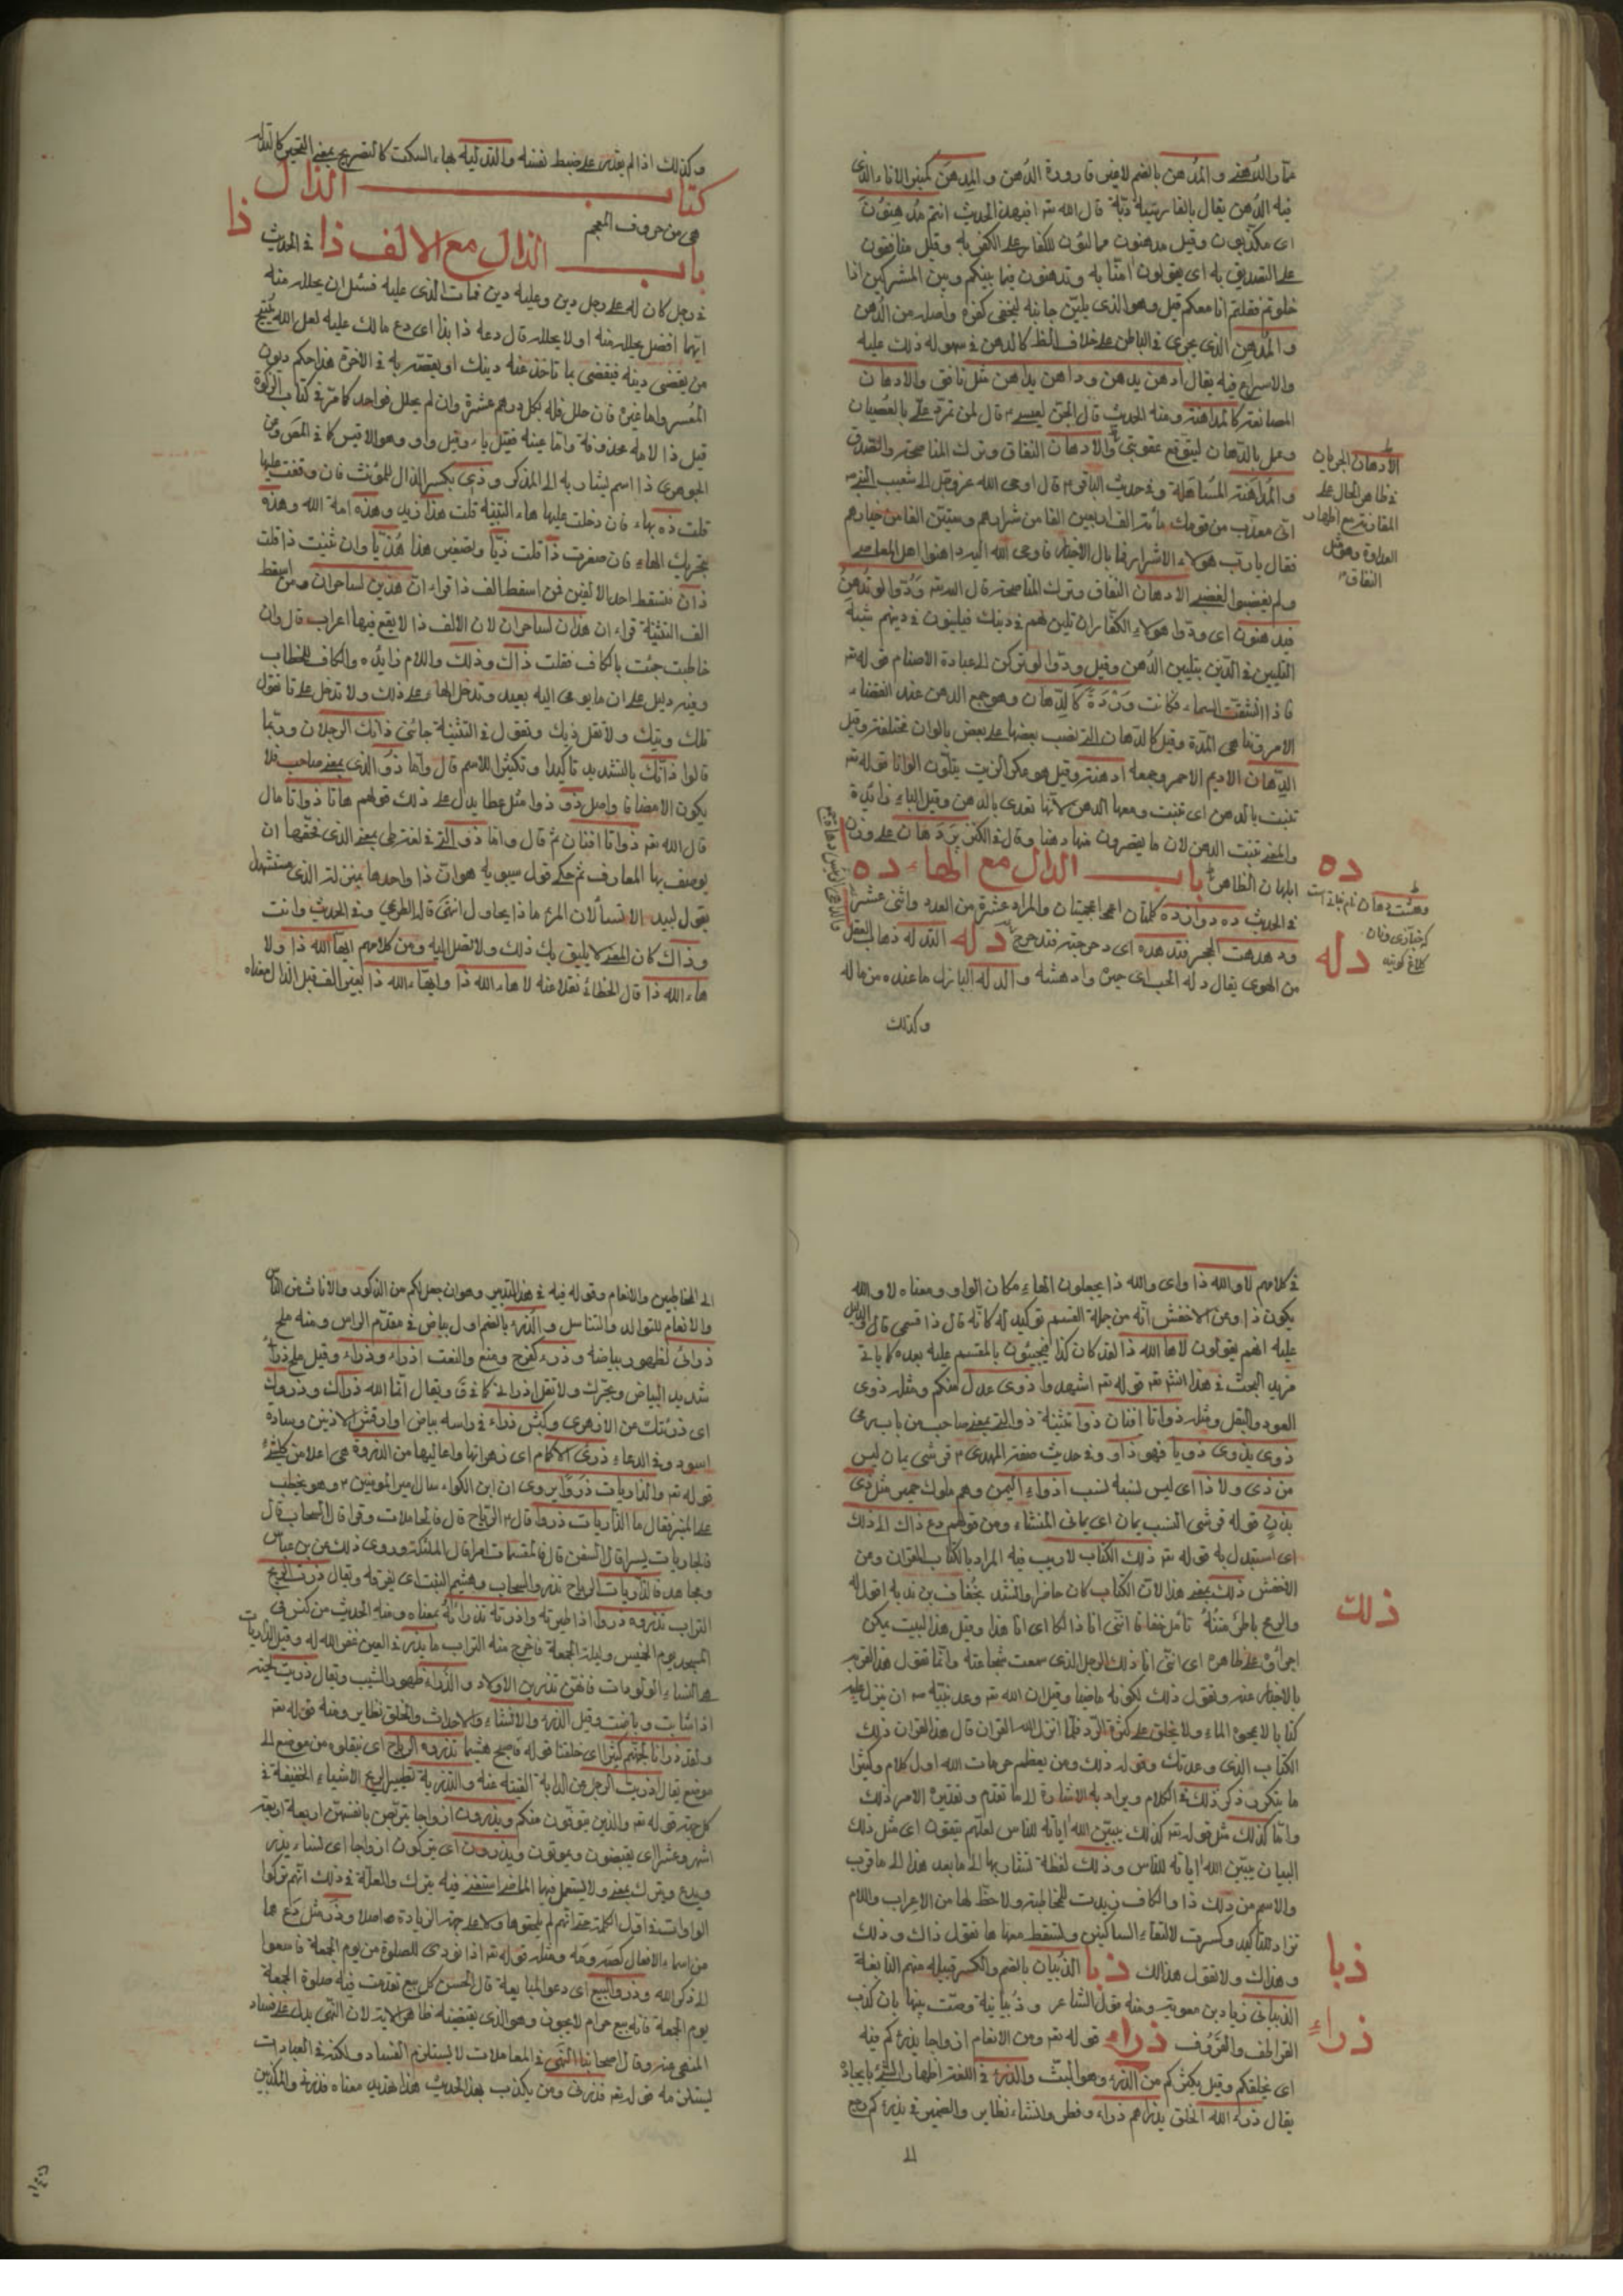 متا والدهني والمدهن بالضم لا غير قارورة الدهن والمدهن كمنبر الاناء الذي
فيه الدهن يقال بالفارسية دبة قال الله تعه افبهذا الحديث انتم مدهنون
اى مكذبون وقيل مدهنون ممالئون للكفار على الكفر به وقيل منافقون
على التصديق به اى يقولون امنا به وتدهنون فيما بينكم وبين المشركين اذا
خلوتم فقلتم انا معكم قيل وهو الذى يلين جانبه ليخفى كفره واصله من الدهن
والمدهن الذى يجرى فى الباطن على خلاف الظ كالدهن فى سهوله ذلك عليه
والاسراع فيه يقال ادهن يدهن وداهن يداهن مثل نافق والادهان
المصانعة كالمداهنة ومنه الحديث قال الحق لعيسى ع قال لمن تمرد على بالعصيان
وعمل بالادهان ليتوقع عقوبتى والادهان النفاق وترك المناصحة والصدق
والمداهنة المساهلة وفى حديث الباقر ع قال اوحى الله عز وجل الى شعيب النبى
انى معذب من قومك مائة الف اربعين الفا من شرارهم وستين الفا من خيارهم
فقال يا رب هؤلاء الاشرار فما بال الاخيار فاوحى الله اليه داهنوا اهل المعاصى
ولم يغضبوا لغضبى الادهان النفاق وترك المناصحة قال الله تعه ودوا لو تدهن
فيدهنون اى ودوا هؤلاء الكفار ان تلين لهم فى دينك فيلينون فى دينهم شبه
التليين فى الدين بتليين الدهن وقيل ودوا لو تركن الى عبادة الاصنام قوله تعه
فاذا انشقت السماء فكانت وردة كالدهان وهو جمع الدهن عند انقضاء
الامر وتناهى المدة وقيل كالدهان التى تصب بعضها على بعض بالوان مختلفة وقيل
الدهان الاديم الاحمر وجمعه ادهنة وقيل هو عكر الزيت يتلون الوانا قوله تعه
تنبت بالدهن اى تنبت ومعها الدهن لانها تغدى بالدهن وقيل الباء زائدة
والمعنى تنبت الدهن لان ما يعصرون منها دهنا وقال فى الكنز بردهان على وزن
ابلهان الظاهر باب الدال مع الهاء ده
فى الحديث ده دوازده كلمتان اعجميتان والمراد عشرة من العدد واثنى عشر
ودهدهت الحجر فتدهده اى دحرجته فتدحرج دله التدله ذهاب العقل
من الهوى يقال دله الحب اى حيره وادهشه والدله البازل ما عنده من ماله
وكذلك
الادهان الجريان
فى ظاهر الحال على
المقاربة مع اظهار
العداوة وهو مثل
النفاق
ده
دله
وكذلك اذا لم يقدر على ضبط نفسه والتدليه بهاء السكت كالتصريح بمعنى التحير كالتدله
كتاب الذال
هى من حروف المعجم
باب الذال مع الالف ذا فى الحديث
ذا
فى رجل كان له على رجل دين وعليه دين فمات الذى عليه فسئل ان يحلله منه
ايهما افضل يحلله منه او لا يحلله قال دعه ذا بذا اى دع مالك عليه لعل الله يقيض
من يقضى دينه فيقضى بما تاخذ عنه دينك او يعتصر به فى الاخرة هذا حكم ديون
المعسر واما غيره فان حلل فله بكل درهم عشرة وان لم يحلل فواحد كما مر فى كتاب الزكوة
قيل ذا لامه محذوفة واما عينه فقيل ياء وقيل واو وهو الاقيس كما فى المص وعن
الجوهرى ذا اسم يشار به الى المذكر وذى بكسر الذال للمؤنث فان وقفت عليها
قلت ذه بهاء فان دخلت عليها هاء التنبيه قلت هذا زيد وهذه امة الله وهذه
بتحريك الهاء فان صغرت ذا قلت ذيا وتصغير هذا هذيا وان ثنيت ذا قلت
ذان فتسقط احد الالفين فمن اسقط الف ذا قراء ان هذين لساحران ومن اسقط
الف التثنية قراء ان هذان لساحران لان الالف ذا لا يقع فيها اعراب قال وان
خاطبت جئت بالكاف فقلت ذاك وذلك واللام زايده والكاف للخطاب
وفيه دليل على ان ما يومى اليه بعيد وتدخل الهاء على ذلك ولا تدخل على تا تقول
تلك وتيك ولا تقل ذيك وتقول فى التثنية جائنى ذانك الرجلان وربما
قالوا ذانك بالتشديد تاكيدا وتكثيرا للاسم قال واما ذو الذى بمعنى صاحب فلا
يكون الا مضافا واصل ذو ذوا مثل عصا يدل على ذلك قولهم هاتا ذواتا مال
قال الله تعه ذواتا افنان ثم قال واما ذو التى فى لغة طى بمعنى الذى فحقها ان
يوصف بها المعارف ثم حكى قول سيبويه هو ان ذا واحدها بمنزلة الذى مستشهدا
بقول لبيد الا تسألان المرء ماذا يحاول انتهى قاله الطريحى وفى الحديث وانت
وذاك كان المعنى لا يليق بك ذلك ولا تصل اليه ومن كلامهم ايها الله ذا ولا
هاء الله ذا قال الخطائى نقلا عنه لا هاء الله ذا وايهاء الله ذا بغير الف قبل الذال معناه
فى كلامهم لا والله ذا واى والله ذا يجعلون الهاء مكان الواو ومعناه لا والله
يكون ذا وعن الاخفش انه من جملة القسم توكيد له كانه قال ذا قسمى قال والدليل
عليه انهم يقولون لاها الله ذا لقد كان كذا فيجيئون بالمقسم عليه بعده كما ياتى
مزيد البحث فى هذا انشه تعه قوله تعه اشهدوا ذوى عدل منكم ومثله ذوى
العود والبقل ومثله ذواتا افنان ذوا تثنية ذو التى بمعنى صاحب من باب رمى
ذوى يذوى ذويا فهو ذاو وفى حديث صفة المهدى ع قرشى يمان ليس
من ذى ولا ذا اى ليس نسبه نسب اذواء اليمن وهم ملوك حمير مثل ذى
يزن قوله قرشى النسب يمان اى يمانى المنشاء ومن قولهم دع ذاك الى ذلك
اى استبدل به قوله تعه ذلك الكتاب لا ريب فيه المراد بالكتاب القران وعن
الاخفش ذلك بمعنى هذا لان الكتاب كان حاضرا وانشد بخفاف بن ندبه اقول له
والرمح ياطر متنه تامل خفافا اننى انا ذا لكا اى انا هذا وقيل هذا البيت يمكن
اجراؤه على ظاهره اى اننى انا ذلك الرجل الذى سمعت شجاعته وانما تقول هذا لقرب
بالاخبار عنه وتقول ذلك لكونه ماضيا وقيل ان الله تعه وعد نبيه ص ان ينزل عليه
كتابا لا يمحوه الماء ولا يخلق على كثرة الرد فلما انزل الله القران قال هذا القران ذلك
الكتاب الذى وعدتك وقوله ذلك ومن يعظم حرمات الله اول كلام وكثيرا
ما يتكرر ذكر ذلك فى الكلام ويراد به الاشارة الى ما تقدم وتقديره الامر ذلك
واما كذلك مثل قوله تعه كذلك يبين الله اياته للناس لعلهم يتقون اى مثل ذلك
البيان يبين الله اياته للناس وذلك لفظة تشار بها الى ما بعد هذا الى ما قرب
والاسم من ذلك ذا والكاف زيدت للمخاطبة ولا حظ لها من الاعراب واللام
تزاد للتاكيد وكسرت لالتقاء الساكنين ولتسقط معها ها تقول ذاك وذلك
وهذاك ولا تقول هذالك ذبا الذبيان بالضم والكسر قبيلة منهم النابغة
الذبيانى زياد بن معوية ومنه قول الشاعر وذبيانية وصت بنيها بان كذب
القراطف والقروف ذراء قوله تعه ومن الانعام ازواجا يذرؤكم فيه
اى يخلقكم وقيل يكثركم من الذرء وهو البث والذرء فى اللغة اظهار الشئ بايجاده
يقال ذرء الله الخلق يذراهم ذراء وفطر وانشاء نظاير والضمير فى يذرءكم يرجع
الى
ذلك
ذبا
ذراء
الى المخاطبين والانعام وقوله فيه فى هذا التدبير وهو ان جعل لكم من الذكور والاناث من الناس
والانعام للتوالد والتناسل والذرءة بالضم اول بياض فى مقدم الراس ومنه ملح
ذرآنى لظهور بياضه وذرء كفرح ومنع والنعت اذراء وذراء وقيل ملح ذرآنى
شديد البياض ويحرك ولا تقل اذرانى كما فى ق ويقال انما الله ذراك وذروك
اى ذريتك من الازهرى وكبش ذراء فى راسه بياض او ارقش الاذنين وساده
اسود وفى الدعاء ذرى الاكام اى زهراتها واعاليها من الذروة هى اعلا من كل شئ
قوله تعه والذاريات ذروا يروى ان ابن الكواء سال امير المؤمنين ع وهو يخطب
على المنبر فقال ما الذاريات ذروا قال ع الرياح قال فالحاملات وقرا قال السحاب قال
فالجاريات يسرا قال السفن قال فالمقسمات امرا قال الملئكة وروى ذلك عن بن عباس
ومجاهد فالذاريات الرياح تذرو السحاب وهشيم النبت اى يفرقه ويقال ذرت الريح
التراب تذروه ذروا اذا طيرته واذرته تذرائه بمعناه ومنه الحديث من كنس فى
المسجد يوم الخميس وليلة الجمعة فاخرج منه التراب ما يذر فى العين غفر الله له وقيل الذاريات
هى النساء الولودات فانهن تذرين الاولاد والذراء ظهور الشيب ويقال ذريت لحيته
اذا شابت وباضت وقيل الذرء والانشاء والاحداث والخلق نظاير ومنه قوله تعه
ولقد ذرانا لجهنم كثيرا اى خلقنا قوله فاصبح هشيما تذروه الرياح اى ينقلوه من موضع الى
موضع يقال اذريت الرجل عن الدابة القيته عنه والتذرية تطيير الريح الاشياء الخفيفة فى
كل جهة قوله تعه والذين يتوفون منكم ويذرون ازواجا يتربصن بانفسهن اربعة
اشهر وعشرا اى يقبضون ويموتون ويذرون اى يتركون ازواجا اى نساء يذر
ويدع ويترك بمعنى ولا يستعمل فيها الماضى استغنى فيه بترك والعلة فى ذلك انهم تركوا
الواوات فى اول الكلمة حتى انهم لم يلحقوها اولا على جهة الزيادة اصلا وذر مثل دع هما
من اسماء الافعال كصه ومه ومثله قوله تعه اذا نودى للصلوة من يوم الجمعة فاسعوا
الى ذكر الله وذروا البيع اى دعوا المبايعة قال الحسن كل بيع تفوت فيه صلوة الجمعة
يوم الجمعة فانه بيع حرام لا يجوز وهو الذى يقتضيه ظاهر الاية لان النهى يدل على فساد
المنهى عنه وقال اصحابنا النهى فى المعاملات لا يستلزم الفساد ولكنه فى العبادات
يستلزمه قوله تعه فذرنى ومن يكذب بهذا الحديث هذا تهديد معناه فذرنى والمكذبين